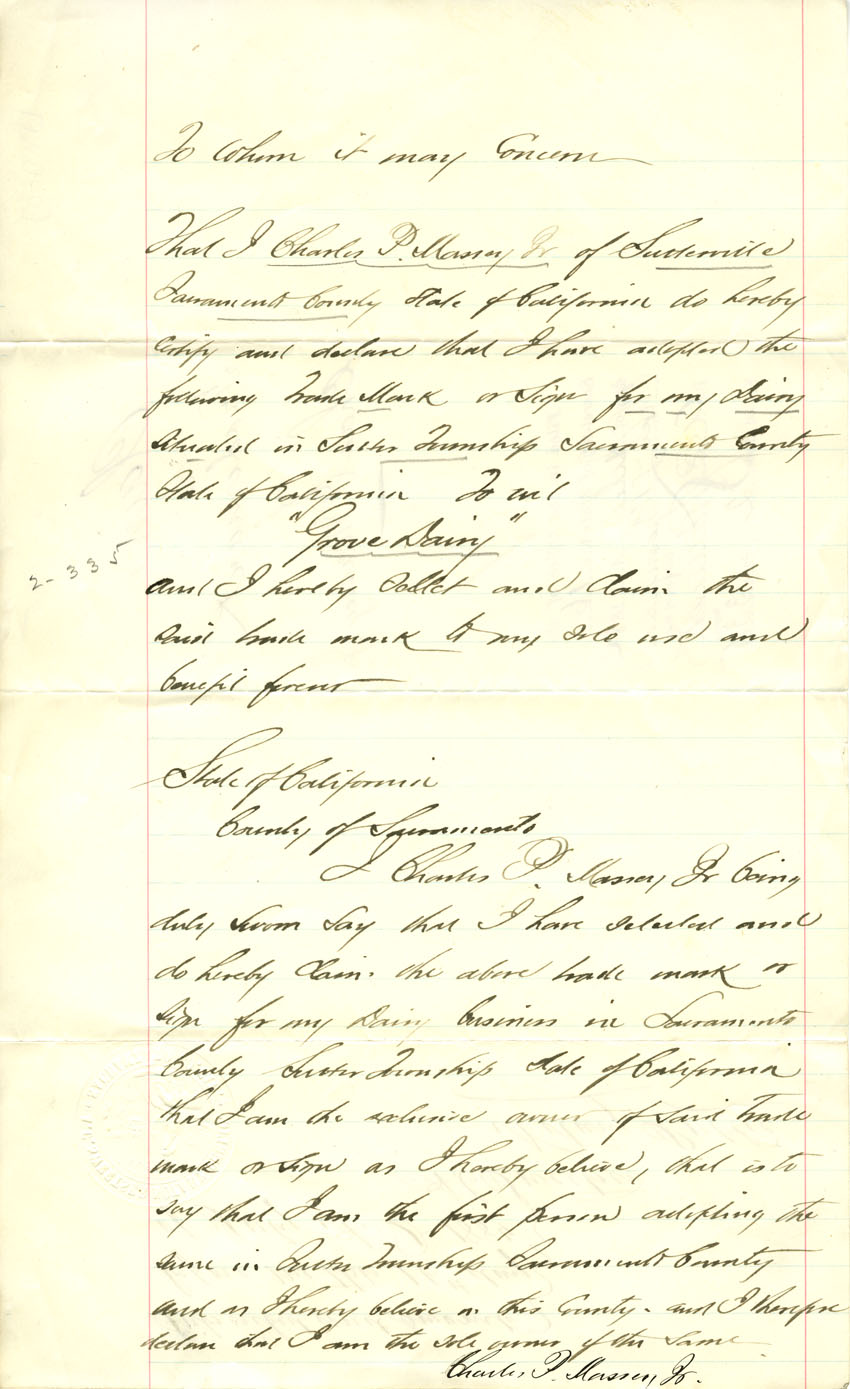 To Whom it may Concern
That I Charles P. Massey Jr of Sutterville
Sacramento County State of California do hereby
certify and declare that I have adopted the
following Trade Mark or Sign for my Dairy
situated in Sutter Township Sacramento County
State of California To wit
"Grove Dairy"
2-335
and I hereby select and claim the
said trade mark to my sole use and
benefit forever
State of California
County of Sacramento
I Charles P. Massey Jr being
duly sworn say that I have selected and
do hereby claim the above trade mark or
sign for my Dairy business in Sacramento
County Sutter Township State of California
that I am the exclusive owner of said trade
mark or sign as I hereby believe, that is to
say that I am the first person adopting the
same in Sutter Township Sacramento County
and as I hereby believe in this County - and I therefore
declare that I am the sole owner of the same
Charles P. Massey, Jr.